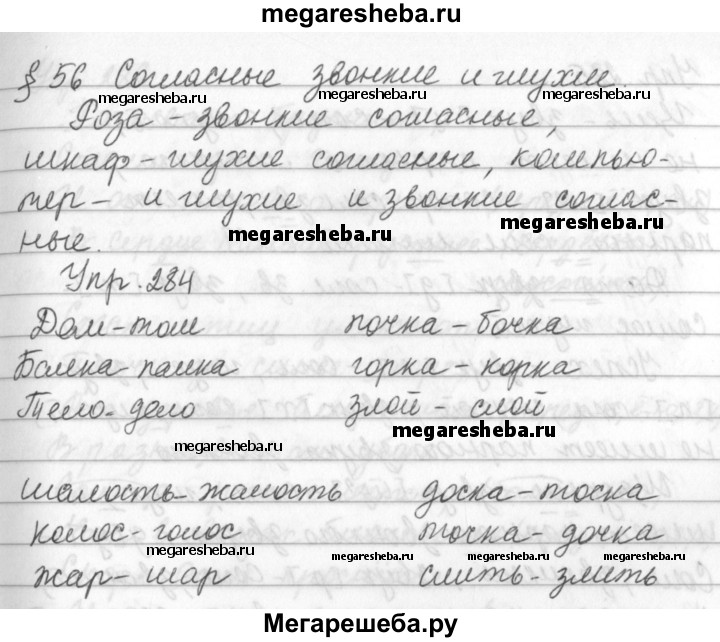 megaresheba.ru
§ 56 Согласные звонкие и глухие.
megaresheba.ru megaresheba.ru megaresheba.ru
Роза - звонкие согласные,
шкаф - глухие согласные, компью-
тер - и глухие и звонкие соглас-
megaresheba.ru
ные.
megaresheba.ru
Упр. 284
Дом - том почка - бочка
Балка - палка горка - корка
Тело - дело злой - слой
megaresheba.ru
megaresheba.ru
шалость - жалость доска - тоска
колос - голос точка - дочка
megaresheba.ru megaresheba.ru megaresheba.ru
жар - шар слить - злить
Мегарешеба.ру